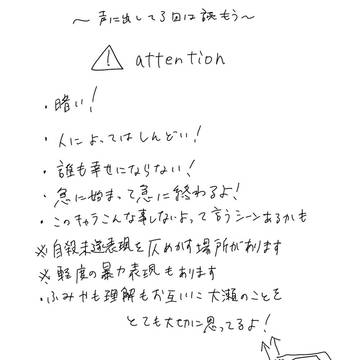 〜声に出して3回は読もう〜
! attention
・暗い!
・人によってはしんどい!
・誰も幸せにならない!
・急に始まって急に終わるよ!
・このキャラこんな事しないよって言うシーンあるかも
※自殺未遂表現を仄めかす場所があります
※軽度の暴力表現もあります
・ふみやも理解もお互いに大瀬のことを
とても大切に思ってるよ!